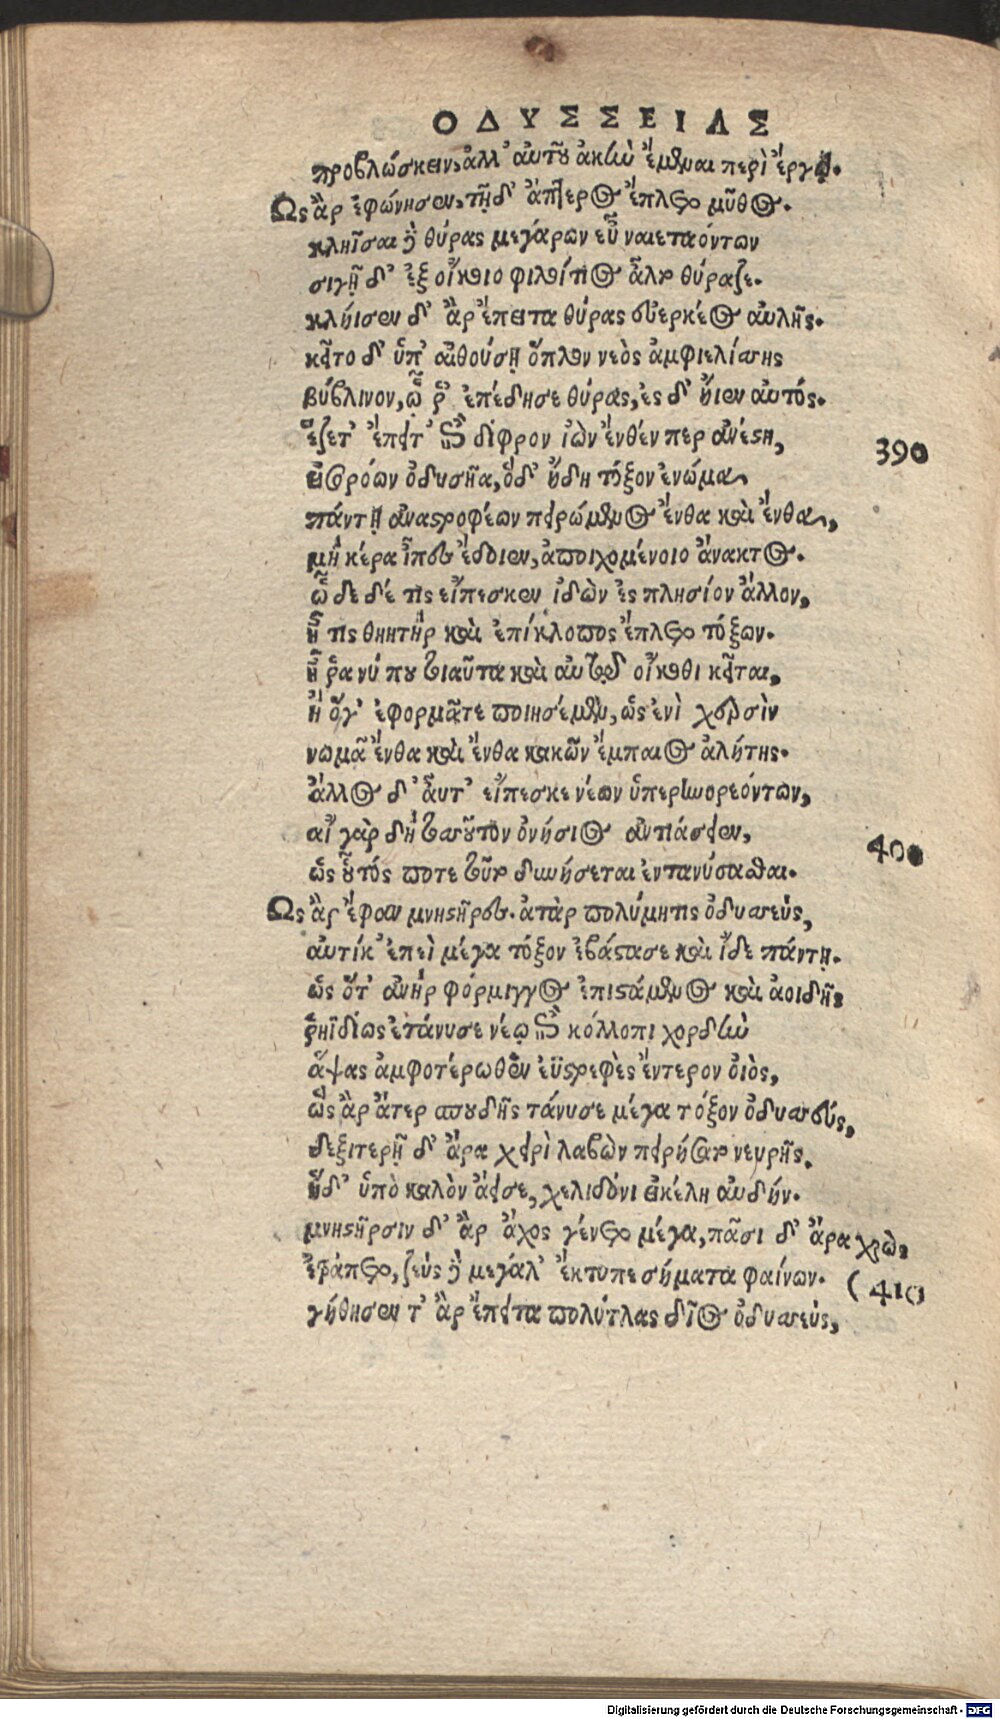 ΟΔΥΣΣΕΙΑΣ
προβλώσκειν, ἀλλ' αὐτοῦ ἀκὴν ἔμεναι περὶ ἔργῳ.
Ὣς ἂρ ἐφώνησεν, τῇ δ' ἄπτερος ἔπλετο μῦθος.
κλήϊσαι δὲ θύρας μεγάρων εὖ ναιεταόντων
σιγῇ δ' ἐξ οἴκοιο φιλοίτιος ἆλτο θύραζε.
κλήισεν δ' ἂρ ἔπειτα θύρας εὐερκέος αὐλῆς.
κεῖτο δ' ὑπ' αἰθούσῃ ὅπλον νεὸς ἀμφιελίσσης
βύβλινον, ᾧ ῥ' ἐπέδησε θύρας, ἐς δ' ἤιεν αὐτός.
ἕζετ' ἔπειτ' ἐπὶ δίφρον ἰὼν ἔνθέν περ ἀνέστη,
390
εἰσορόων ὀδυσῆα, ὅδ' ἤδη τόξον ἐνώμα
πάντῃ ἀναστροφέων πειρώμενος ἔνθα καὶ ἔνθα,
μὴ κέρα ἶπες ἔδοιεν, ἀποιχομένοιο ἄνακτος.
ὧδε δέ τις εἴπεσκεν ἰδὼν ἐς πλησίον ἄλλον,
ἦ τις θηητὴρ καὶ ἐπίκλοπος ἔπλετο τόξων.
ἦ ῥα νύ που τοιαῦτα καὶ αὐτῷ οἴκοθι κεῖται,
ἢ ὅγ' ἐφορμᾶτε ποιησέμεν, ὡς ἐνὶ χερσὶν
νωμᾶ ἔνθα καὶ ἔνθα κακῶν ἔμπαιος ἀλήτης.
ἄλλος δ' αὖτ' εἴπεσκε νέων ὑπερηνορεόντων,
αἲ γὰρ δὴ τοσσοῦτον ὀνήσιος ἀντιάσειεν,
400
ὡς οὗτός ποτε τοῦτο δυνήσεται ἐντανύσασθαι.
Ὣς ἂρ ἔφαν μνηστῆρες. ἀτὰρ πολύμητις ὀδυσσεύς,
αὐτίκ' ἐπεὶ μέγα τόξον ἐβάστασε καὶ ἴδε πάντῃ.
ὡς ὅτ' ἀνὴρ φόρμιγγος ἐπιστάμενος καὶ ἀοιδῆς
ῥηϊδίως ἐτάνυσε νέῳ ἐπὶ κόλλοπι χορδὴν
ἅψας ἀμφοτέρωθεν ἐϋστρεφὲς ἔντερον οἰὸς,
ὣς ἂρ ἄτερ σπουδῆς τάνυσε μέγα τόξον ὀδυσσεύς,
δεξιτερῇ δ' ἄρα χειρὶ λαβὼν πειρήσατο νευρῆς.
ἡδ' ὑπὸ καλὸν ἄεισε, χελιδόνι εἰκέλη αὐδήν.
μνηστῆρσιν δ' ἂρ ἄχος γένετο μέγα, πᾶσι δ' ἄρα χρὼς
ἐτράπετο, ζεὺς δὲ μεγάλ' ἔκτυπε σήματα φαίνων.
( 410
γήθησεν τ' ἂρ ἔπειτα πολύτλας δῖος ὀδυσσεύς,
Digitalisierung gefördert durch die Deutsche Forschungsgemeinschaft - DFG